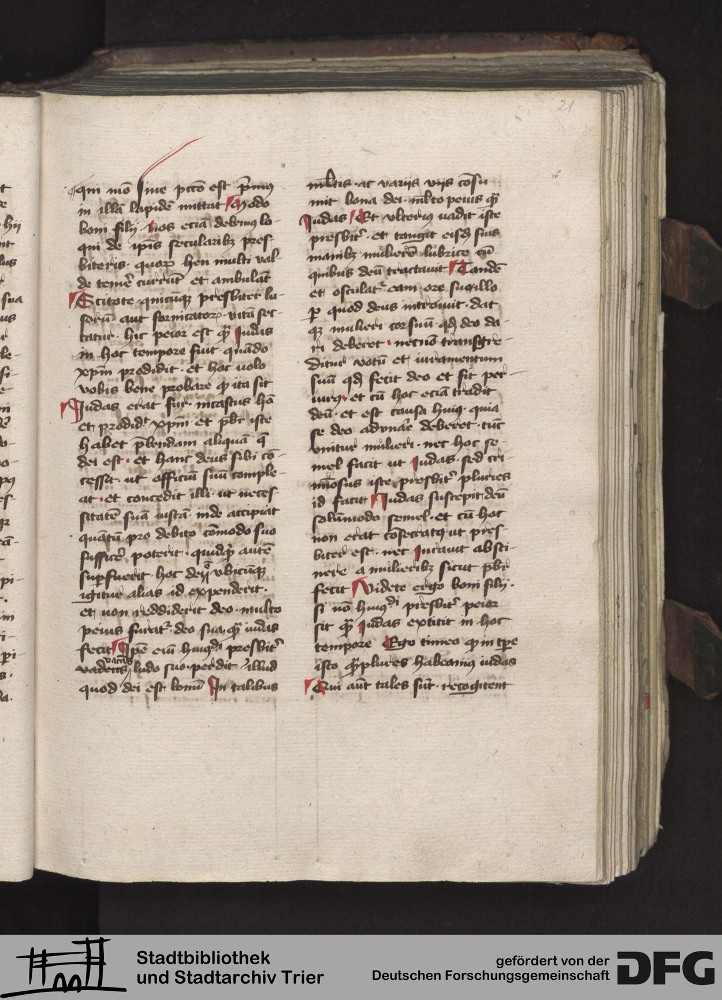 21
qui mo sine pctō est p̄mus
in illā lapidem mittat Modo
boni filij hos eciā debemus lo-
qui de ip̄is secularibz pres-
biteris quorȝ heu multi val-
de temē currūt et ambulāt
Scitote quicūqȝ presbiter lu-
xoriā aut fornicatorȝ vitā sec-
tatur hic peior est qȝ Iudas
in hoc tempore fuit quādo
xp̄m prodidit et hoc uolo
vobis bene probare qȝ ita sit
Iudas erat fur incastus
et prodidit xp̄m et pbr iste
habet p̄bendam aliquā q̄
dei est et hanc deus sibi cō-
cessit ut officiū suū comple-
at et concedit illi ut neces
sitatē suā iustā inde accipiat
quātū pro debito cōmodo suo
sufficē poterit quidqȝ autē
supfuerit hoc ubicūqȝ
igitur alias id expenderit
et non reddiderit deo multo
peius furatˢ deo sua qȝ iudas
fecit Ipē eciā presbitˢ
vadens ludo suo perdit illud
quod dei est bonū In talibus
mltis ac varijs vijs cōsu
mit bona dei mlto peius qȝ
Iudas Et ulterius uadit iste
presbitˢ et tangit eisdē suis
manibȝ mulierē lubrice cū
quibus deū tractauit Tandē
et osculatˢ eam ore suo illo
p quod deus introiuit dat
qȝ mulieri cor suū qd deo da
ri deberet necnō transgre-
ditur votū et iuramentum
suū qd fecit deo et sit per-
iurȝ et cū hoc eciā tradit
deū et est causa huiȝ quia
se deo adunare deberet tūc
vnitur mulieri nec hoc se-
mel facit ut Iudas sed cri-
mīosus iste presbitˢ pluries
id facit Iudas suscepit deū
solūmodo semel et cū hoc
non erat cōsecratȝ ut pres-
biter est nec iurauit absti
nere a mulieribȝ sicut pbr
fecit Videte ergo boni filij
si nō huiȝdi presbitˢ peior
sit qȝ Iudas extitit in hoc
tempore Ego timeo qȝ in tpe
isto qȝplures habeamȝ iudas
Qui aūt tales sūt recogitent
Stadtbibliothek
und Stadtarchiv Trier
gefördert von der
Deutschen Forschungsgemeinschaft
DFG